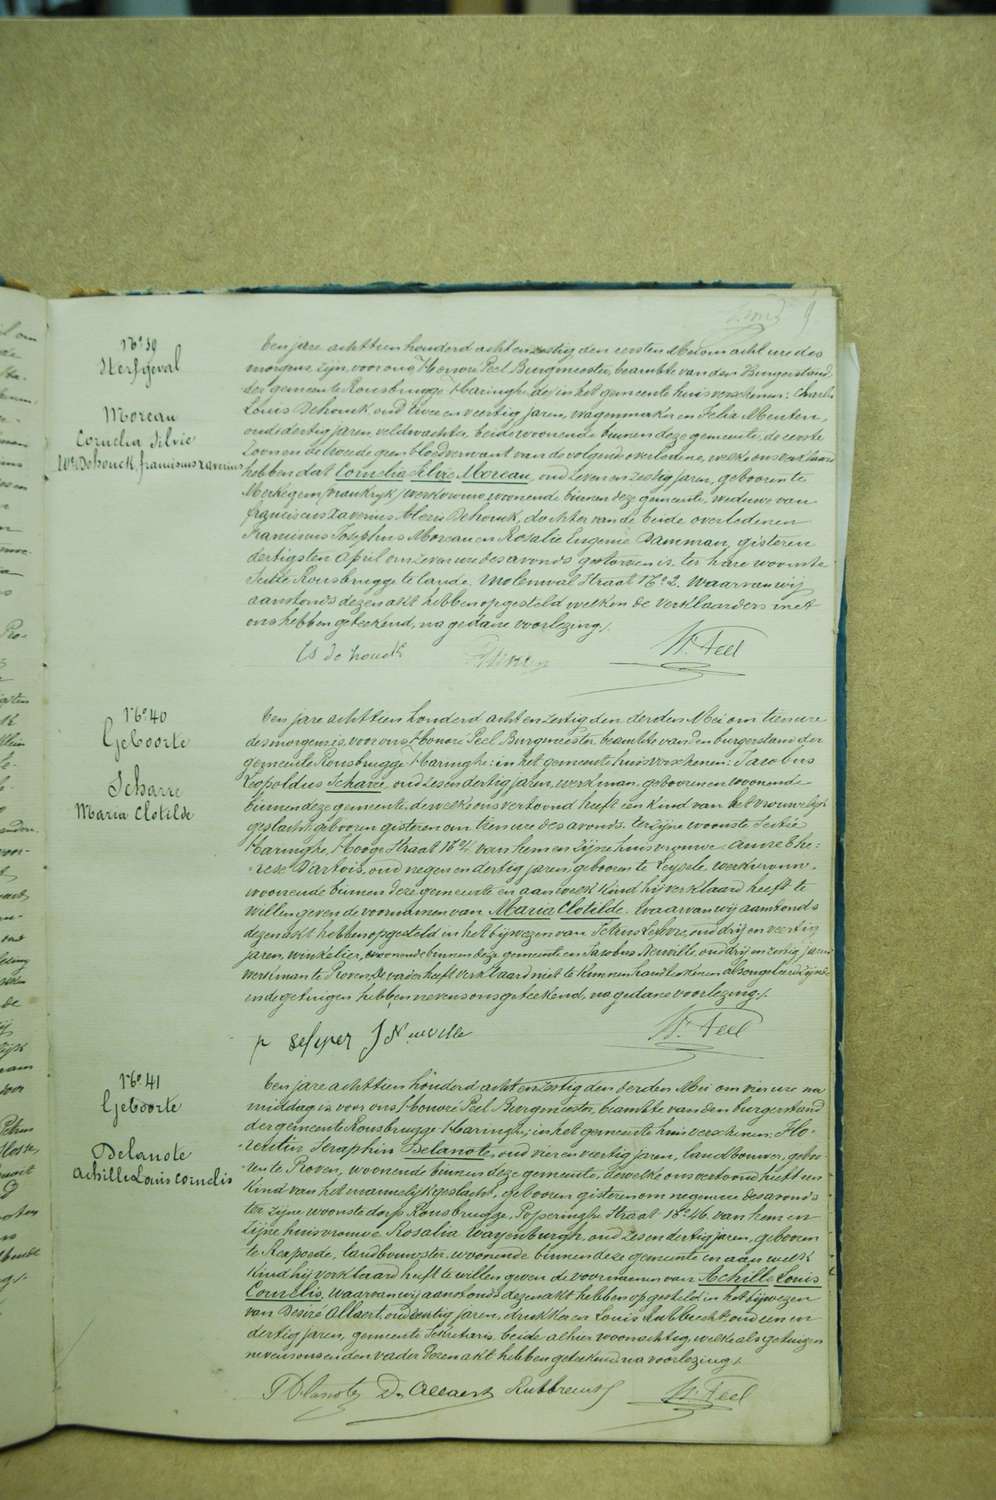 N° 39
Sterfgeval
Moreau
Cornelia Silvie
We Dehouck, franciscus xaverius
Een jare achttien honderd acht en zestig den eersten Mei om acht ure des
morgens zyn voor ons Honoré Peel Burgmeester, beambte van den Burgerstand
der gemeente Rousbrugge Haringhe in het gemeente huis verschenen: Charles
Louis Dehouck oud twee en veertig jaren, wagenmaker en Felix Menten,
oud dertig jaren, veldwachter, beide woonende binnen deze gemeente, de eerste
Zoon en de tweede geen bloedverwant van de volgende overledene, welke ons verklaard
hebben dat Cornelia Silvie Moreau, oud zeven en zestig jaren, geboren te
Merkegem, frankryk, werkvrouw, woonende binnen deze gemeente, weduwe van
franciscus Xaverius Alexis Dehouck, dochter van de beide overledenen
Franciscus Josephus Moreau en Rosalie Eugenie Damman, gisteren
dertigsten April om zeven ure des avonds gestorven is, ter hare woonste
Sectie Rousbrugge te lande, Molenwal Straat N° 2. Waarvan wij
aanstonds dezen akt hebben opgesteld welken de verklaarders met
ons hebben geteekend, na gedane voorlezing/.
Cs de houck H. Peel
N° 40
Geboorte
Scharre
Maria Clotilde
Een jare achttien honderd acht en zestig den derden Mei om tien ure
des morgens is voor ons Honoré Peel Burgmeester beambte van den burgerstand der
gemeente Rousbrugge Haringhe: in het gemeente huis verschenen: Jacobus
Leopoldus Scharre, oud zes en dertig jaren, werkman, geboren en woonende
binnen deze gemeente, dewelke ons vertoond heeft een kind van het vrouwelyk
geslacht geboren gisteren om tien ure des avonds, ter zijne woonste Sectie
Haringhe, Hooge Straat N° 21 van hem en zijne huisvrouwe Anne The-
rese Dartois, oud negen en dertig jaren geboren te Leysele, werkvrouw,
woonende binnen deze gemeente en aan welk kind hij verklaard heeft te
willen geven de voornamen van Maria Clotilde. Waarvan wij aanstonds
dezen akt hebben opgesteld in het bijwezen van Petrus Lesyper, oud drij en veertig
jaren, winkelier, woonende binnen deze gemeente en Jacobus Neuville, oud drij en zestig jaren
werkman te Proven, de vader heeft verklaard niet te kunnen handteekenen alsongeleerd zijnde
en de getuigen hebben nevens ons geteekend, na gedane voorlezing/.
J Neuville H. Peel
N° 41
Geboorte
Delanote
Achille Louis Cornelis
Een jare achttien honderd acht en zestig den derden Mei om vier ure na
middag is voor ons Honoré Peel Burgmeester, beambte van den burgerstand
der gemeente Rousbrugge Haringhe, in het gemeente huis verschenen: Flo-
rentin Seraphin Delanote, oud vier en veertig jaren, landbouwer, gebo-
ren te Proven, woonende binnen deze gemeente, dewelke ons vertoond heeft een
kind van het mannelijk geslacht, geboren gisteren om negen ure des avonds
ter zijne woonste dorp Rousbrugge, Poperinghe Straat N° 46. van hem en
zijne huisvrouwe Rosalia Wayenburgh, oud zes en dertig jaren, geboren
te Rexpoede, landbouwster woonende binnen deze gemeente en aan welk
kind hij verklaard heeft te willen geven de voornamen van Achille Louis
Cornelis, waarvan wij aanstonds dezen akt hebben opgesteld in het bijwezen
van Desiré Allaert, oud dertig jaren, drukker en Louis Rubbrecht oud een en
dertig jaren, gemeente Sekretaris, beide alhier woonachtig, welke als getuigen
nevens ons en den vader dezen akt hebben geteekend na voorlezing/.
F Delanote Dre Allaert Rubbrecht H. Peel